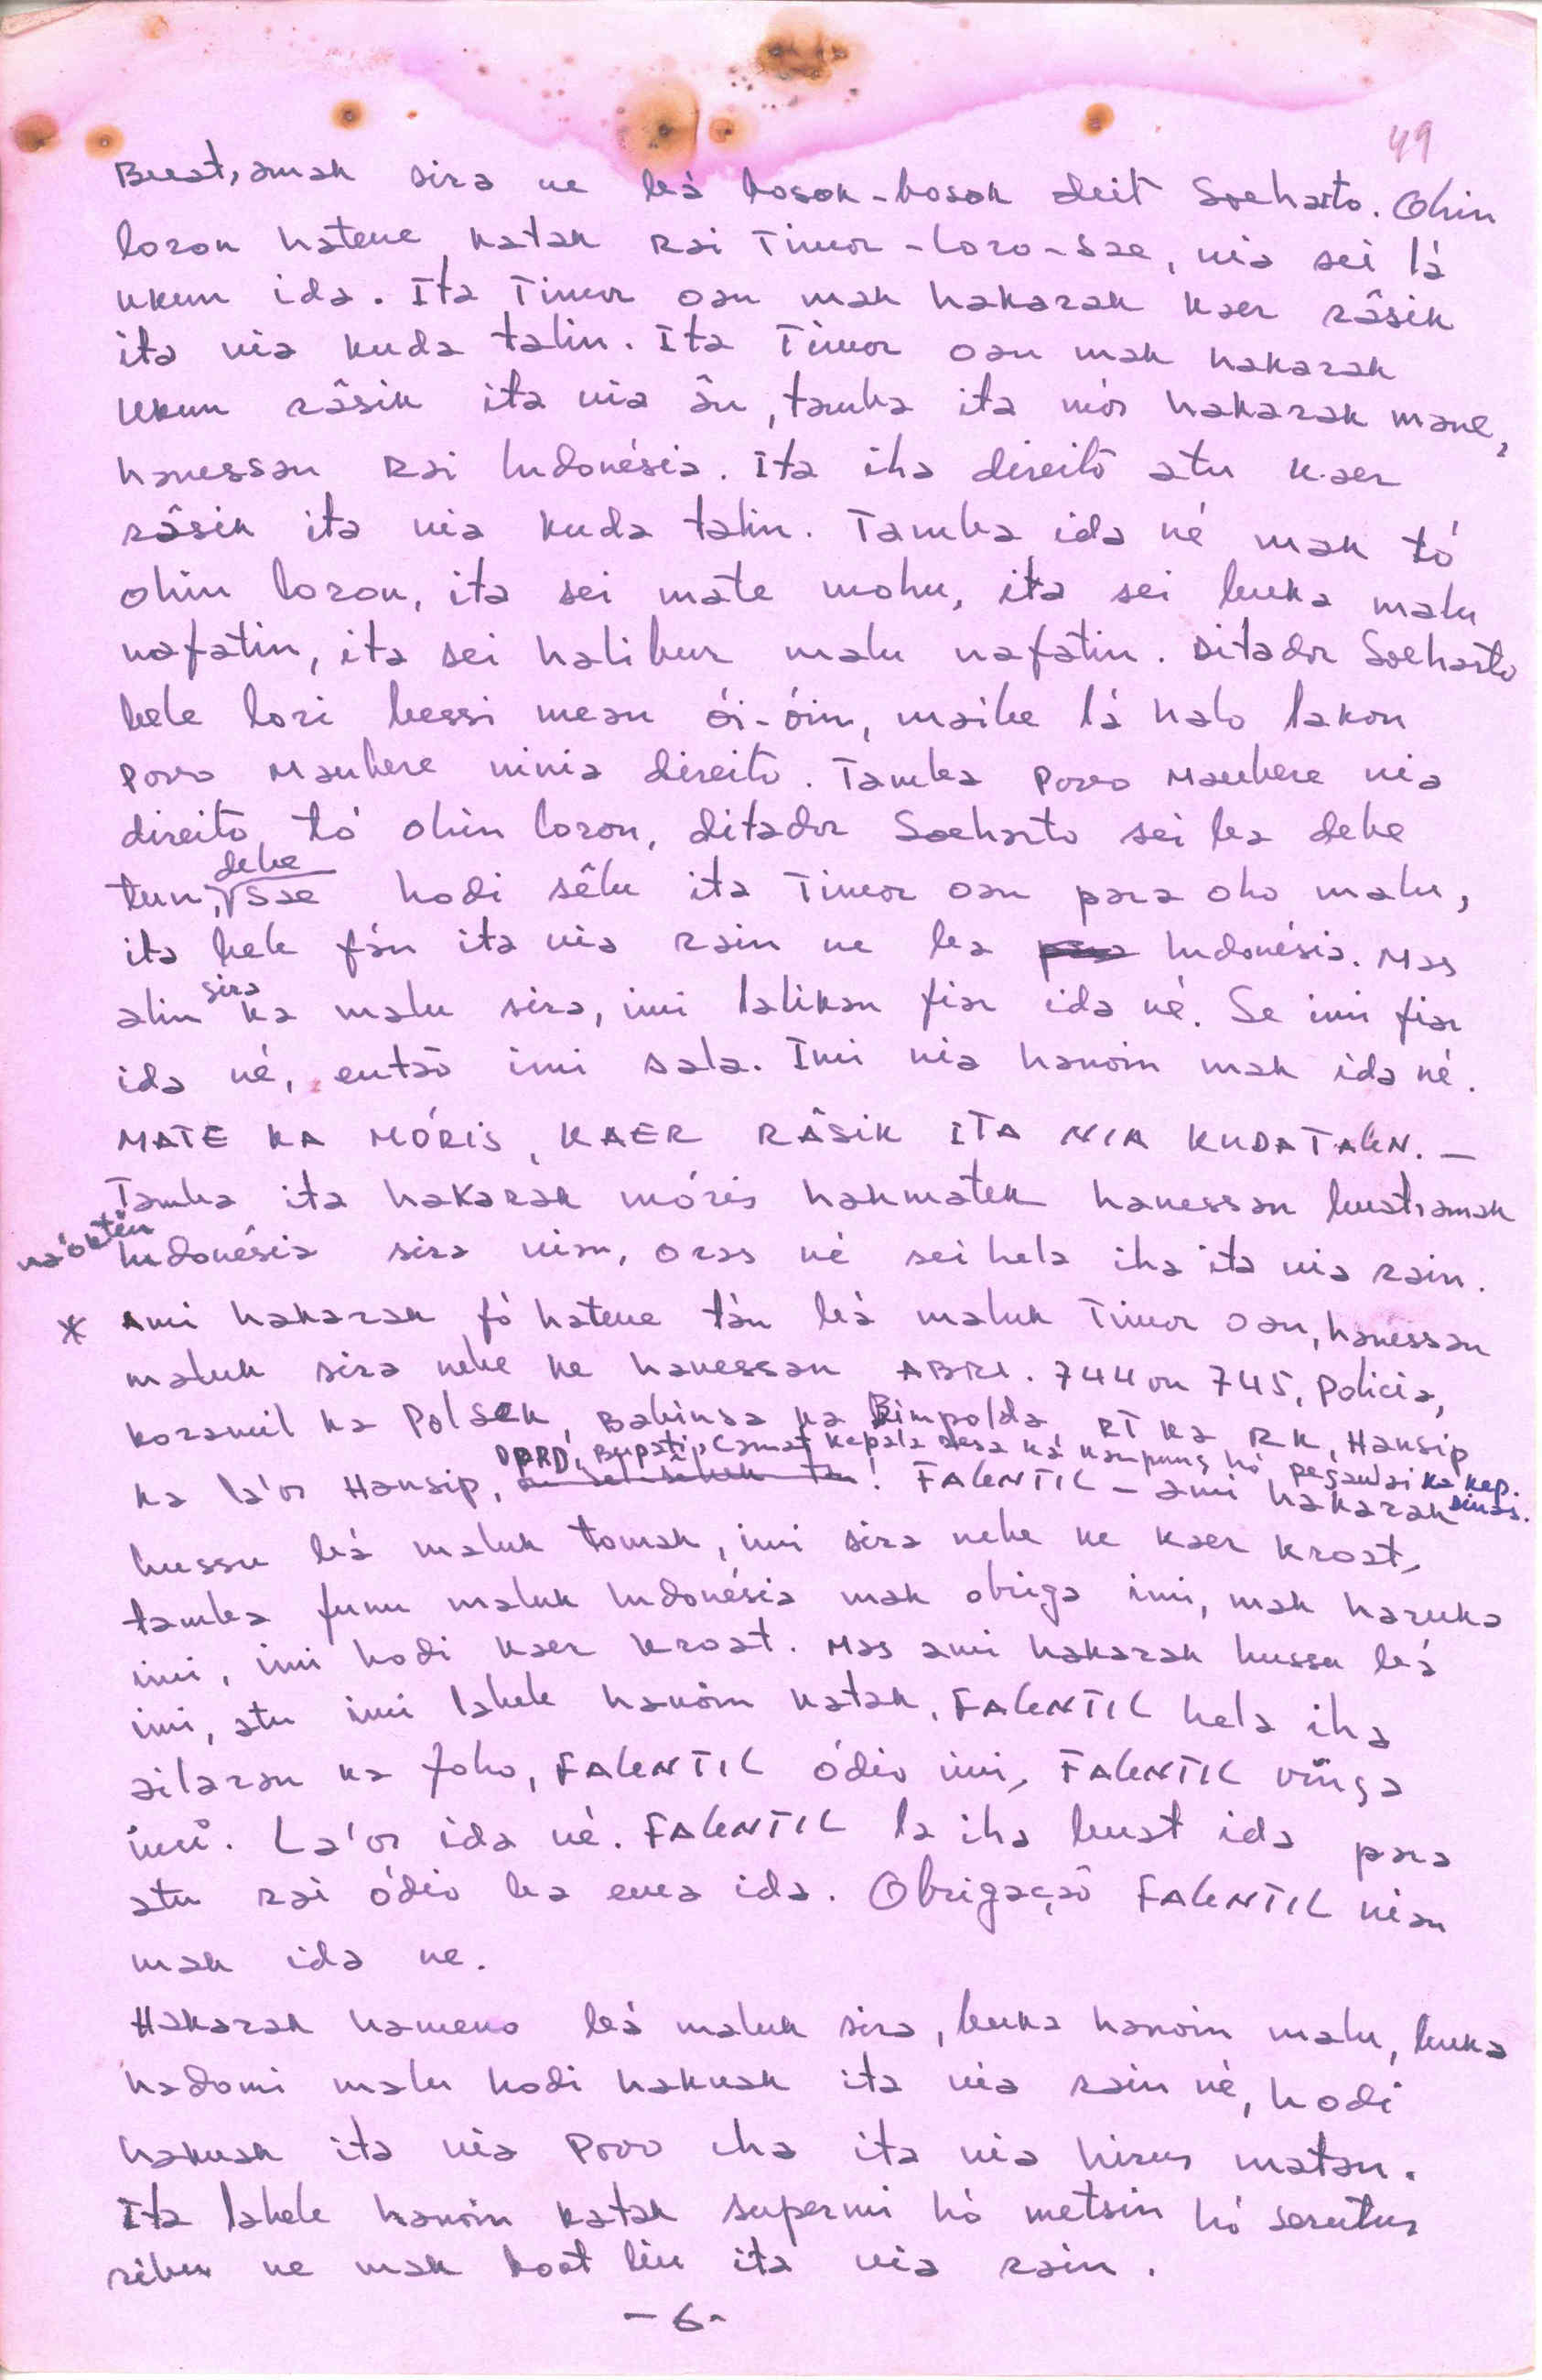 49
Buat, amak sira ne bá bosok-bosok deit Soeharto. Ohin
loron hatene katak Rai Timor-Loro-Sae, nia sei lá
ukun ida. Ita Timor oan mak hakarak kaer râsik
ita nia kuda talin. Ita Timor oan mak hakarak
ukun râsik ita nia ân, tamba ita mós hakarak mane,
hanessan Rai Indonésia. Ita iha direito atu kaer
râsik ita nia kuda talin. Tamba ida né mak tó
ohin loron, ita sei mate mohu, ita sei buka malu
nafatin, ita sei halibur malu nafatin. Ditador Soeharto
bele lori bessi mean ói-óin, maibe lá halo lakon
Povo Maubere ninia direito. Tamba Povo Maubere nia
direito, tó ohin loron, ditador Soeharto sei ba dehe
tun, dehe sae hodi sêlu ita Timor oan para oho malu,
ita bele fán ita nia rain ne ba Indonésia. Mas
alin sira ka malu sira, imi lalikan fiar ida né. Se imi fiar
ida né, entaõ imi sala. Imi nia hanoin mak ida né.
MATE KA MÓRIS, KAER RÂSIK ITA NIA KUDATALIN. —
Tamba ita hakarak móris hakmatek hanessan buat, amak
na'óktén Indonésia sira nian, oras né sei hela iha ita nia rain.
* Ami hakarak fó hatene tán bá maluk Timor oan, hanessan
maluk sira nebe ne hanessan ABRI. 744 ou 745, Policia,
koramil ka Polsek, Babinsa ka Bimpolda, RT ka RK, Hansip
ka la'os Hansip, DPRD, Bupati, Camat Kepala desa ka kampung hó pegawai ka kep. dinas. ! FALINTIL – ami hakarak
hussu bá maluk tomak, imi sira nebe ne kaer kroat,
tamba funu maluk Indonésia mak obriga imi, mak haruka
imi, imi hodi kaer kroat. Mas ami hakarak hussu bá
imi, atu imi labele hanoin katak, FALINTIL hela iha
ailaran ka foho, FALINTIL ódio imi, FALINTIL vinga
imi. La'os ida né. FALINTIL la iha buat ida para
atu rai ódio ba ema ida. Obrigaçaõ FALINTIL nian
mak ida ne.
Hakarak hameno bá maluk sira, buka hanoin malu, buka
hadomi malu hodi hakuak ita nia rain né, hodi
hakuak ita nia Povo iha ita nia hirus matan.
Ita labele hanoin katak supermi hó metsin hó serutus
ribu ne mak boot liu ita nia rain.
- 6 -